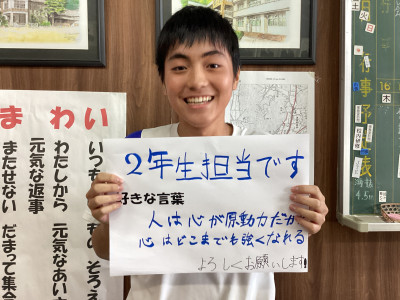 2年生担当です
好きな言葉
人は心が原動力だか
心はどこまでも強くなれる
よろしくお願いします!
まわい
いつ も の そろえ
わたしから 元気なあい
元気な返事
またせない だまって集合
行事予定表
16
木
土
火